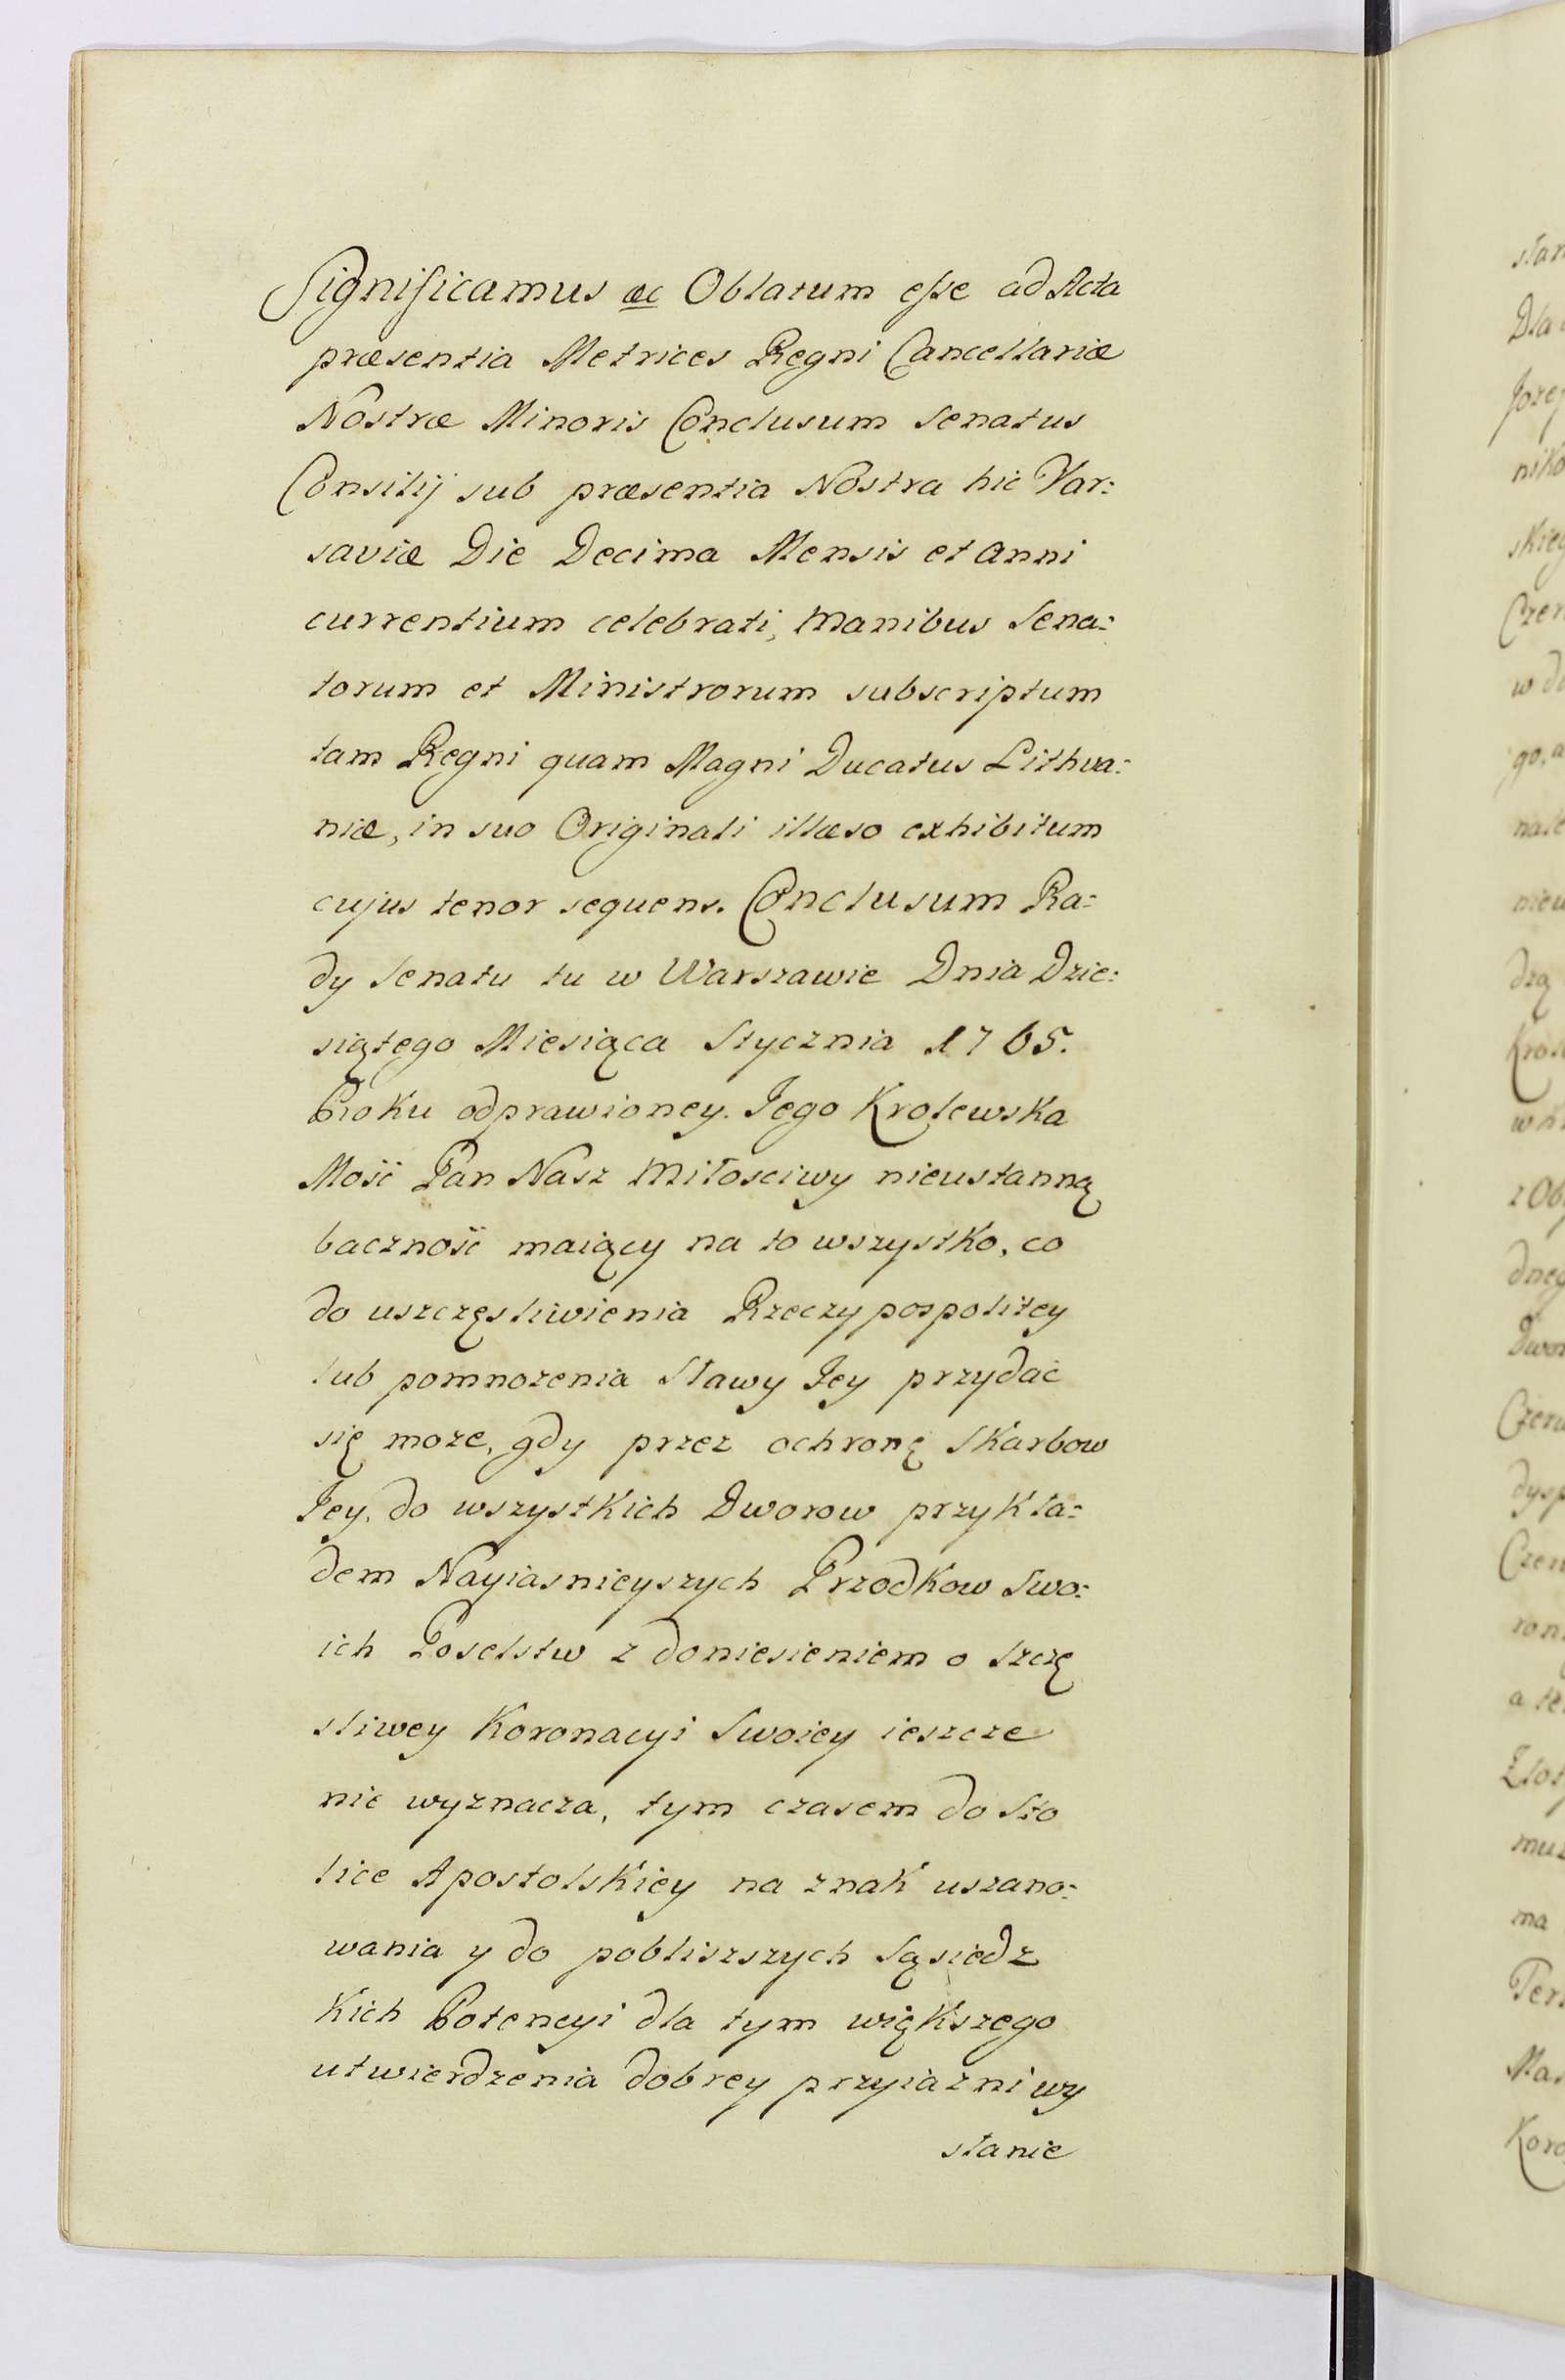 Significamus &c Oblatum esse ad Acta
præsentia Metrices Regni Cancellariæ
Nostræ Minoris Conclusum Senatus
Consilij sub præsentia Nostra hic Var:
saviæ Die Decima Mensis et Anni
currentium celebrati, Manibus Sena:
torum et Ministrorum subscriptum
tam Regni quam Magni Ducatus Lithva:
niæ, in suo Originali illæso exhibitum
cujus tenor sequens. Conclusum Ra:
dy Senatu tu w Warszawie Dnia Dzie:
siątego Miesiąca Stycznia 1765.
Roku odprawioney. Jego Krolewska
Mość Pan Nasz Miłosciwy nieustanną
baczność maiący na to wszystko, co
do uszczęsliwienia Rzeczypospolitey
lub pomnozenia Sławy Jey przydać
się moze, gdy przez ochronę Skarbow
Jey, do wszystkich Dworow przykła:
dem Nayiasnieyszych Przodkow Swo:
ich Poselstw z doniesieniem o Szczę
sliwey Koronacyi Swoiey ieszcze
nie wyznacza, tym czasem do Sto
lice Apostolskiey na znak uszano:
wania y do pobliszszych Sąsiedz
kich Potencyi dla tym większego
utwierdzenia dobrey przyiazni wy
słanie
słan
Dla
Jozef
niko
skieg
Czer
w
go, a
nale
nieu
dzą
Kros
z Ob
dneg
Dwor
Czerw
dysp
Czer
a te
Złot
muz
ma
Ter
Mar
Koro